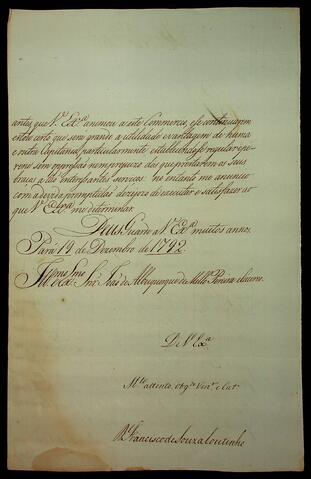 antes, que V.ª Ex.ª anenciou a este Commercio, e se continuarem
entendo certo que será grande a utilidade e vantagem de huma
e outra Capitania, particularmente estabelecendose regular que
venõ sem oppressaõ nem prejuizo dos que prestarem os seus
braços a taõ interssantes serviços: no entanto me anuncio
com a devida promptidaõ desejozo de executar e satisfazer ao
que V.ª Ex.ª me determinar.
Deus Guarde a V.ª Ex.ª muitos annos.
Pará 19 de Dezembro de 1792.
Ill.mo e Ex.mo Snr. Joaõ de Albuquerque de Mello Pereira e Caceres.
De V.ª Ex.ª
M.to attento, Obg.do Ven.or e Cat.º
D. Francisco de Souza Coutinho